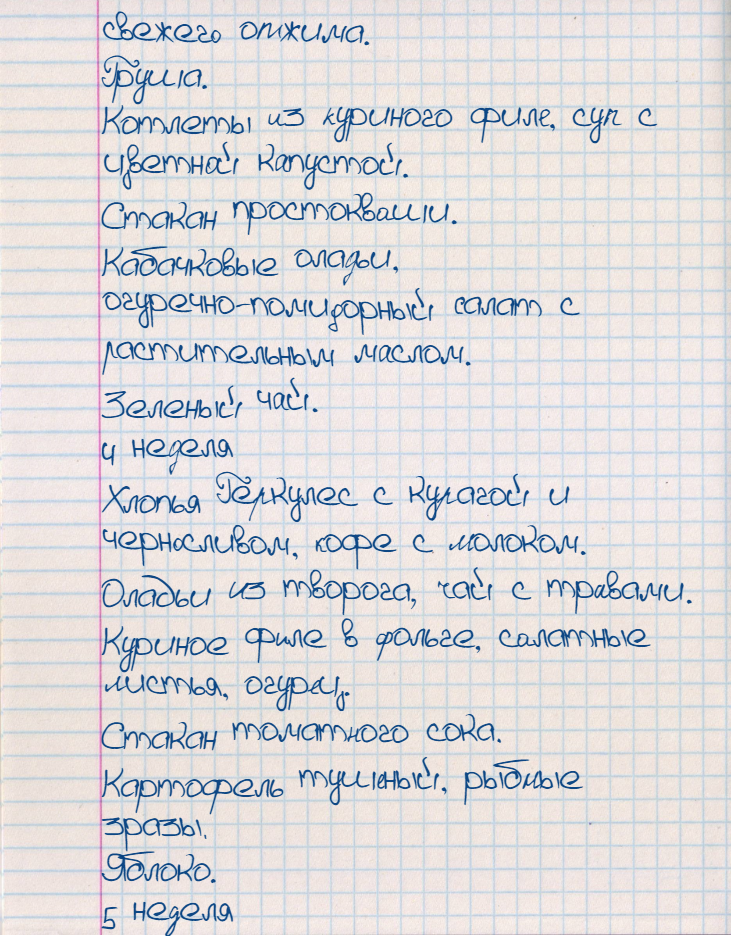 свежего отжима.
Груша.
Котлеты из куриного филе, суп с
цветной капустой.
Стакан простокваши.
Кабачковые оладьи,
огуречно-помидорный салат с
растительным маслом.
Зеленый чай.
4 неделя
Хлопья Геркулес с курагой и
черносливом, кофе с молоком.
Оладьи из творога, чай с травами.
Куриное филе в фольге, салатные
листья, огурец.
Стакан томатного сока.
Картофель тушеный, рыбные
зразы.
Яблоко.
5 неделя